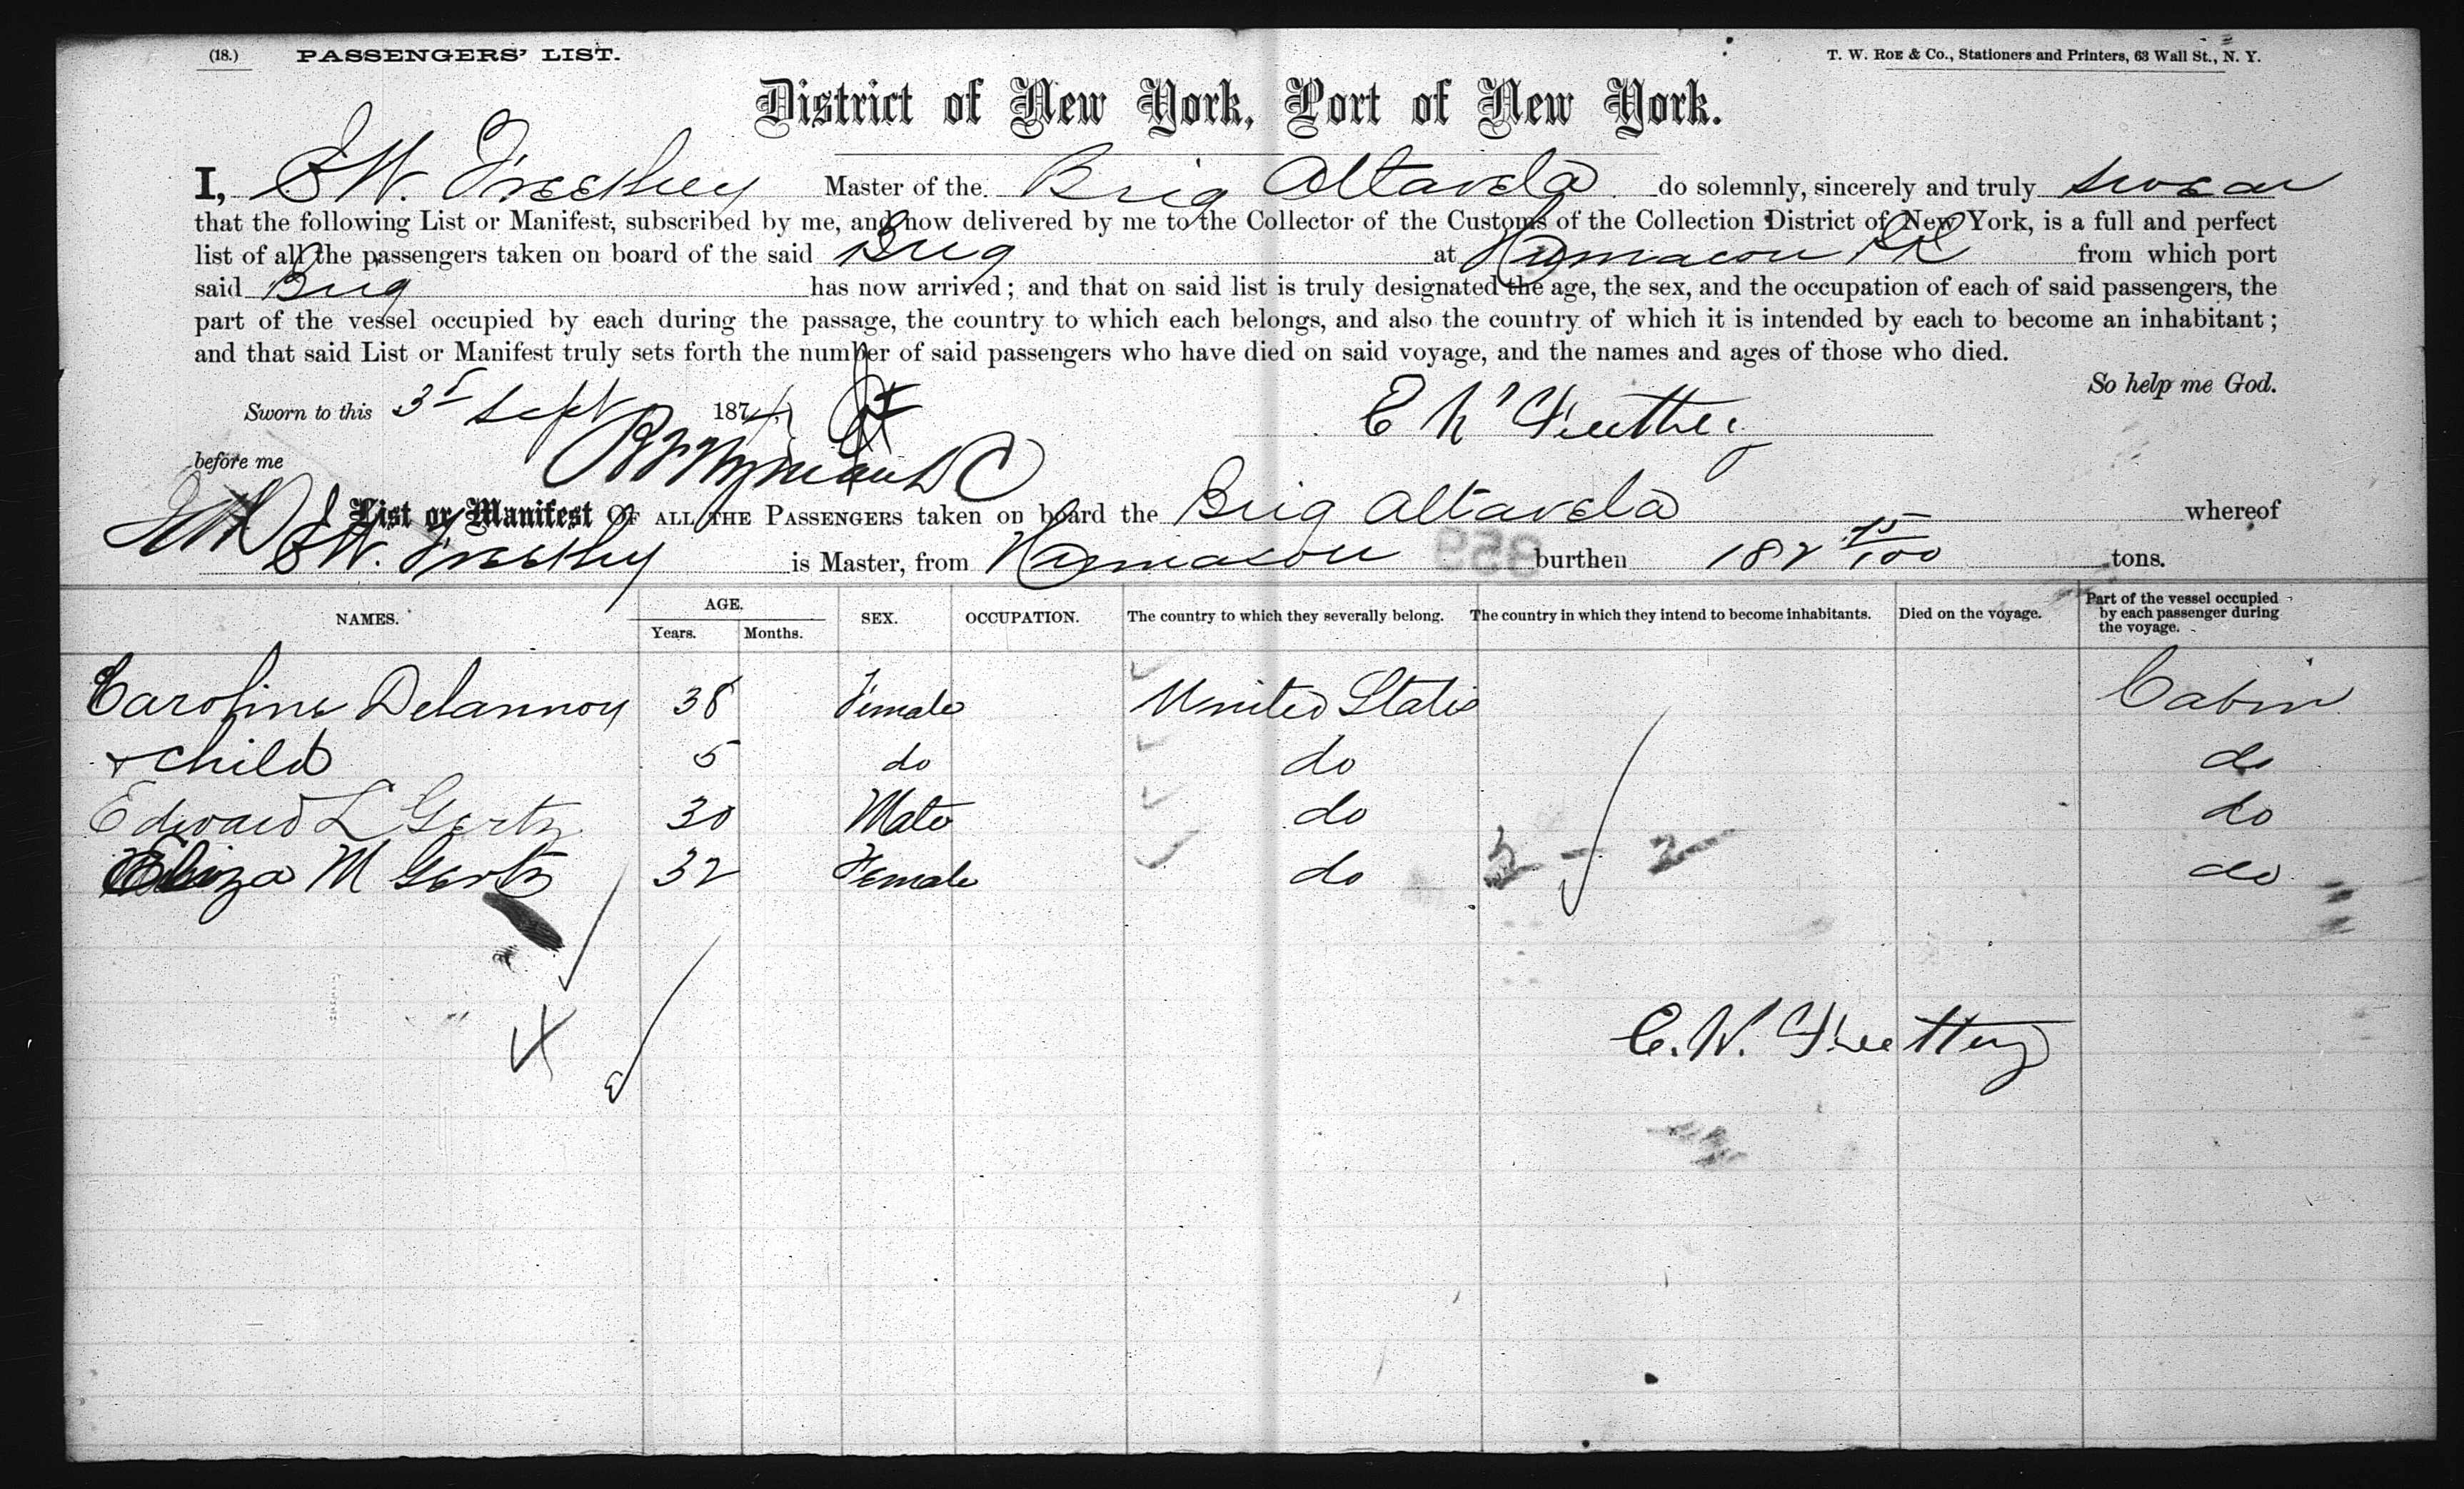 (18.) PASSENGERS' LIST.
T. W. Roe & Co., Stationers and Printers, 63 Wall St., N. Y.
District of New York, Port of New York.
I, E W. Freethey Master of the Brig Altavela do solemnly, sincerely and truly swear
that the following List or Manifest, subscribed by me, and now delivered by me to the Collector of the Customs of the Collection District of New York, is a full and perfect
list of all the passengers taken on board of the said Brig at Humacou PR from which port
said Brig has now arrived; and that on said list is truly designated the age, the sex, and the occupation of each of said passengers, the
part of the vessel occupied by each during the passage, the country to which each belongs, and also the country of which it is intended by each to become an inhabitant;
and that said List or Manifest truly sets forth the number of said passengers who have died on said voyage, and the names and ages of those who died.
So help me God.
Sworn to this 3 Sept 1874
E W Freethey
before me
List or Manifest OF ALL THE PASSENGERS taken on board the Brig Altavela whereof
E W. Freethey is Master, from Humacou burthen 182 75/100 tons.
NAMES. AGE. Years. Months. SEX. OCCUPATION. The country to which they severally belong. The country in which they intend to become inhabitants. Died on the voyage. Part of the vessel occupied by each passenger during the voyage.
Caroline Delannoy 38 Female United States Cabin
+ child 5 do do do
Edward L Gertz 30 Male do do
Eliza M Gertz 32 Female do do
2 - 2
4
E. W. Freethey